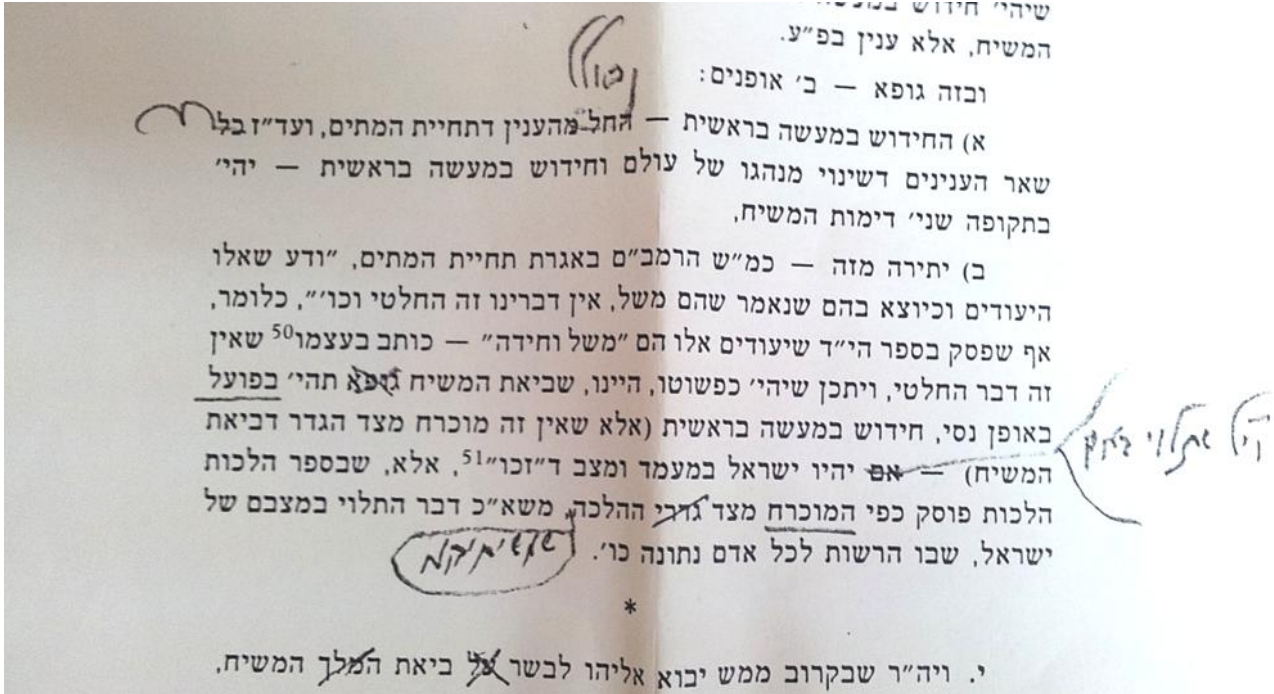 שיהי׳ חידוש
המשיח, אלא ענין בפ״ע.
ובזה גופא — ב׳ אופנים:
א) החידוש במעשה בראשית — החל מהענין דתחיית המתים, ועד״ז בל
שאר הענינים דשינוי מנהגו של עולם וחידוש במעשה בראשית — יהי׳
בתקופה שני׳ דימות המשיח,
ב) יתירה מזה — כמ״ש הרמב״ם באגרת תחיית המתים, ״ודע שאלו
היעודים וכיוצא בהם שנאמר שהם משל, אין דברינו זה החלטי וכו׳״, כלומר,
אף שפסק בספר הי״ד שיעודים אלו הם ״משל וחידה״ — כותב בעצמו50 שאין
זה דבר החלטי, ויתכן שיהי׳ כפשוטו, היינו, שביאת המשיח גופא תהי׳ בפועל
באופן נסי, חידוש במעשה בראשית (אלא שאין זה מוכרח מצד הגדר דביאת
המשיח) — אם יהיו ישראל במעמד ומצב ד״זכו״51, אלא, שבספר הלכות
הלכות פוסק כפי המוכרח מצד גדרי ההלכה, משא״כ דבר התלוי במצבם של
ישראל, שבו הרשות לכל אדם נתונה כו׳.
*
י. ויה״ר שבקרוב ממש יבוא אליהו לבשר על ביאת המלך המשיח,